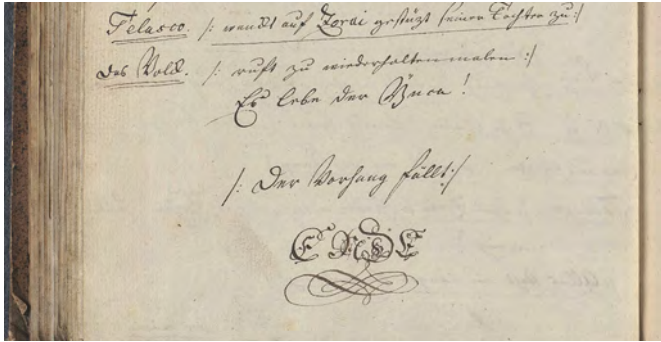 Telasco. /: wankt auf Zorai gestüzt seiner Tochter zu :/
Das Volk. /: ruft zu wiederholten malen :/
Es lebe der Ynca!
/: Der Vorhang fällt :/
ENDE